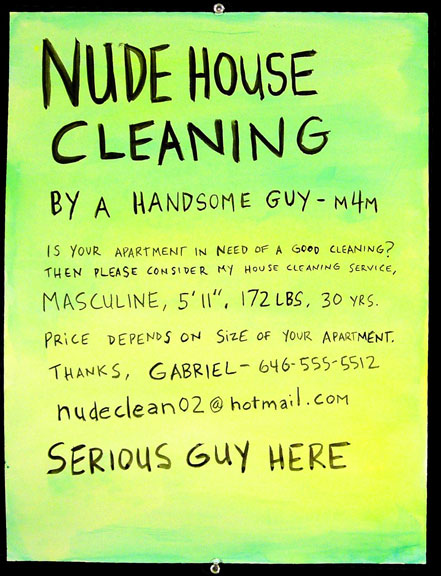 NUDE HOUSE
CLEANING
BY A HANDSOME GUY - M4M
IS YOUR APARTMENT IN NEED OF A GOOD CLEANING?
THEN PLEASE CONSIDER MY HOUSE CLEANING SERVICE,
MASCULINE, 5'11", 172 LBS, 30 YRS.
PRICE DEPENDS ON SIZE OF YOUR APARTMENT.
THANKS, GABRIEL - 646-555-5512
nudeclean02@hotmail.com
SERIOUS GUY HERE